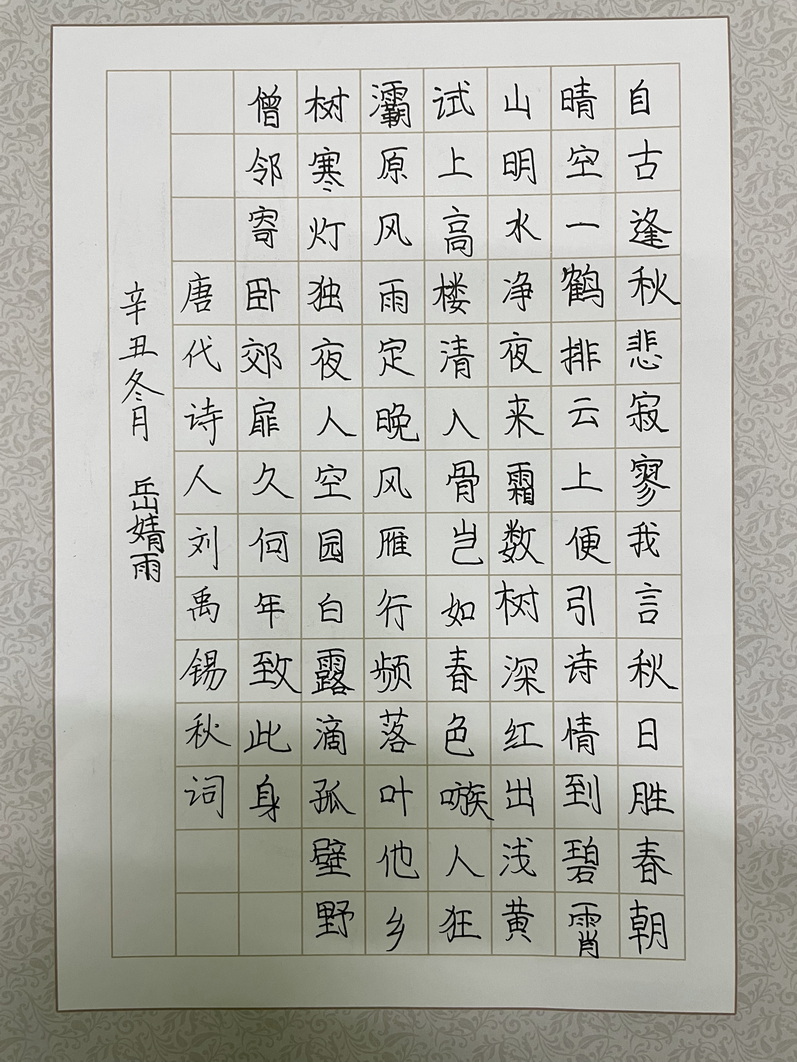 自古逢秋悲寂寥我言秋日胜春朝
晴空一鹤排云上便引诗情到碧霄
山明水净夜来霜数树深红出浅黄
试上高楼清入骨岂如春色嗾人狂
灞原风雨定晚风雁行频落叶他乡
树寒灯独夜人空园白露滴孤壁野
僧邻寄卧郊扉久何年致此身
唐代诗人刘禹锡秋词
辛丑冬月 岳婧雨